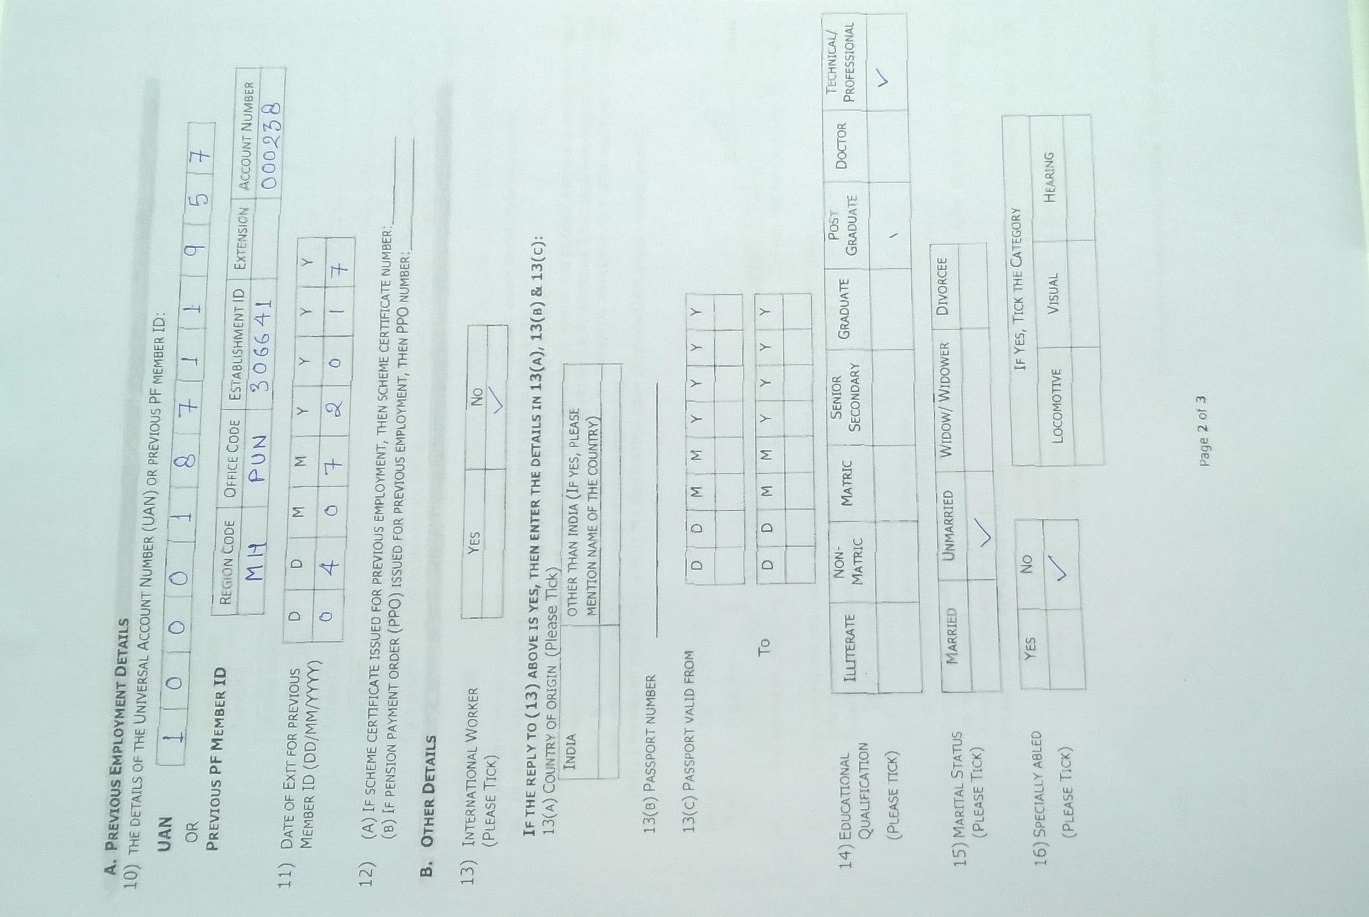 A. PREVIOUS EMPLOYMENT DETAILS
10) THE DETAILS OF THE UNIVERSAL ACCOUNT NUMBER (UAN) OR PREVIOUS PF MEMBER ID:
UAN 1 0 0 0 1 8 7 1 1 9 5 7
OR
PREVIOUS PF MEMBER ID
REGION CODE OFFICE CODE ESTABLISHMENT ID EXTENSION ACCOUNT NUMBER
MH PUN 306641 000238
11) DATE OF EXIT FOR PREVIOUS D D M M Y Y Y Y
MEMBER ID (DD/MM/YYYY) 0 4 0 7 2 0 1 7
12) (A) IF SCHEME CERTIFICATE ISSUED FOR PREVIOUS EMPLOYMENT, THEN SCHEME CERTIFICATE NUMBER:
(B) IF PENSION PAYMENT ORDER (PPO) ISSUED FOR PREVIOUS EMPLOYMENT, THEN PPO NUMBER:
B. OTHER DETAILS
13) INTERNATIONAL WORKER YES NO
(PLEASE TICK) ✓
IF THE REPLY TO (13) ABOVE IS YES, THEN ENTER THE DETAILS IN 13(A), 13(B) & 13(C):
13(A) COUNTRY OF ORIGIN (Please Tick)
INDIA OTHER THAN INDIA (IF YES, PLEASE
MENTION NAME OF THE COUNTRY)
13(B) PASSPORT NUMBER
13(C) PASSPORT VALID FROM D D M M Y Y Y Y
TO D D M M Y Y Y Y
14) EDUCATIONAL ILLITERATE NON- MATRIC SENIOR GRADUATE POST DOCTOR TECHNICAL/
QUALIFICATION MATRIC SECONDARY GRADUATE PROFESSIONAL
(PLEASE TICK) ✓
15) MARITAL STATUS MARRIED UNMARRIED WIDOW/ WIDOWER DIVORCEE
(PLEASE TICK) ✓
16) SPECIALLY ABLED YES NO IF YES, TICK THE CATEGORY
(PLEASE TICK) ✓ LOCOMOTIVE VISUAL HEARING
Page 2 of 3